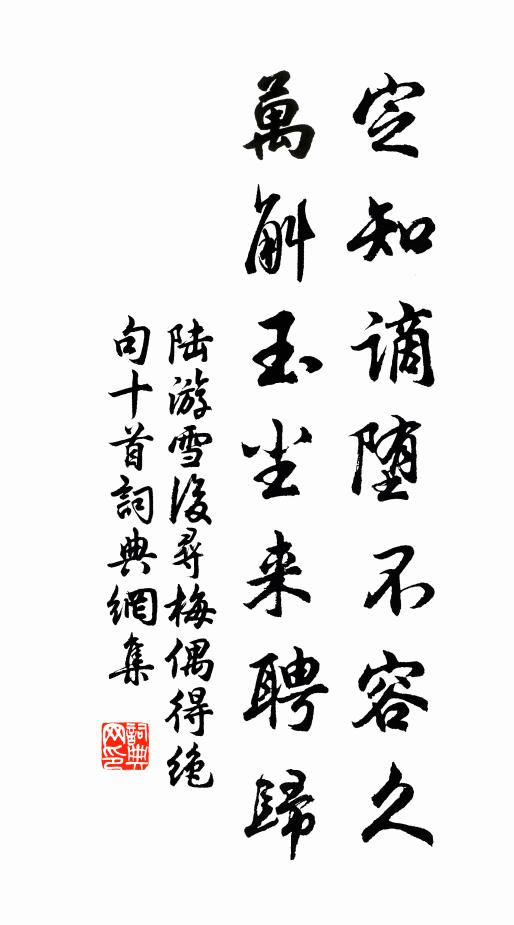 定知谪堕不容久
萬斛玉尘来聘歸
陆游雪後尋梅偶得绝
句十首詞典網集
詞典
网印